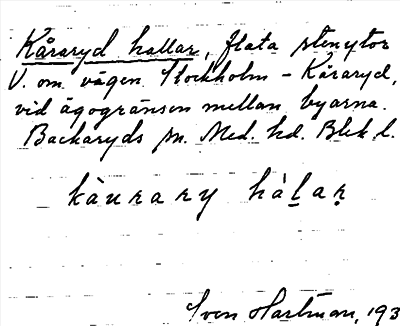 Kåraryd hallar, flata stenytor
V. om vägen Stockholm - Kåraryd,
vid ägogränsen mellan byarna.
Backaryds sn. Med. hd. Blek. l.
kàurary hàḷaṛ
Sven Hartman, 193